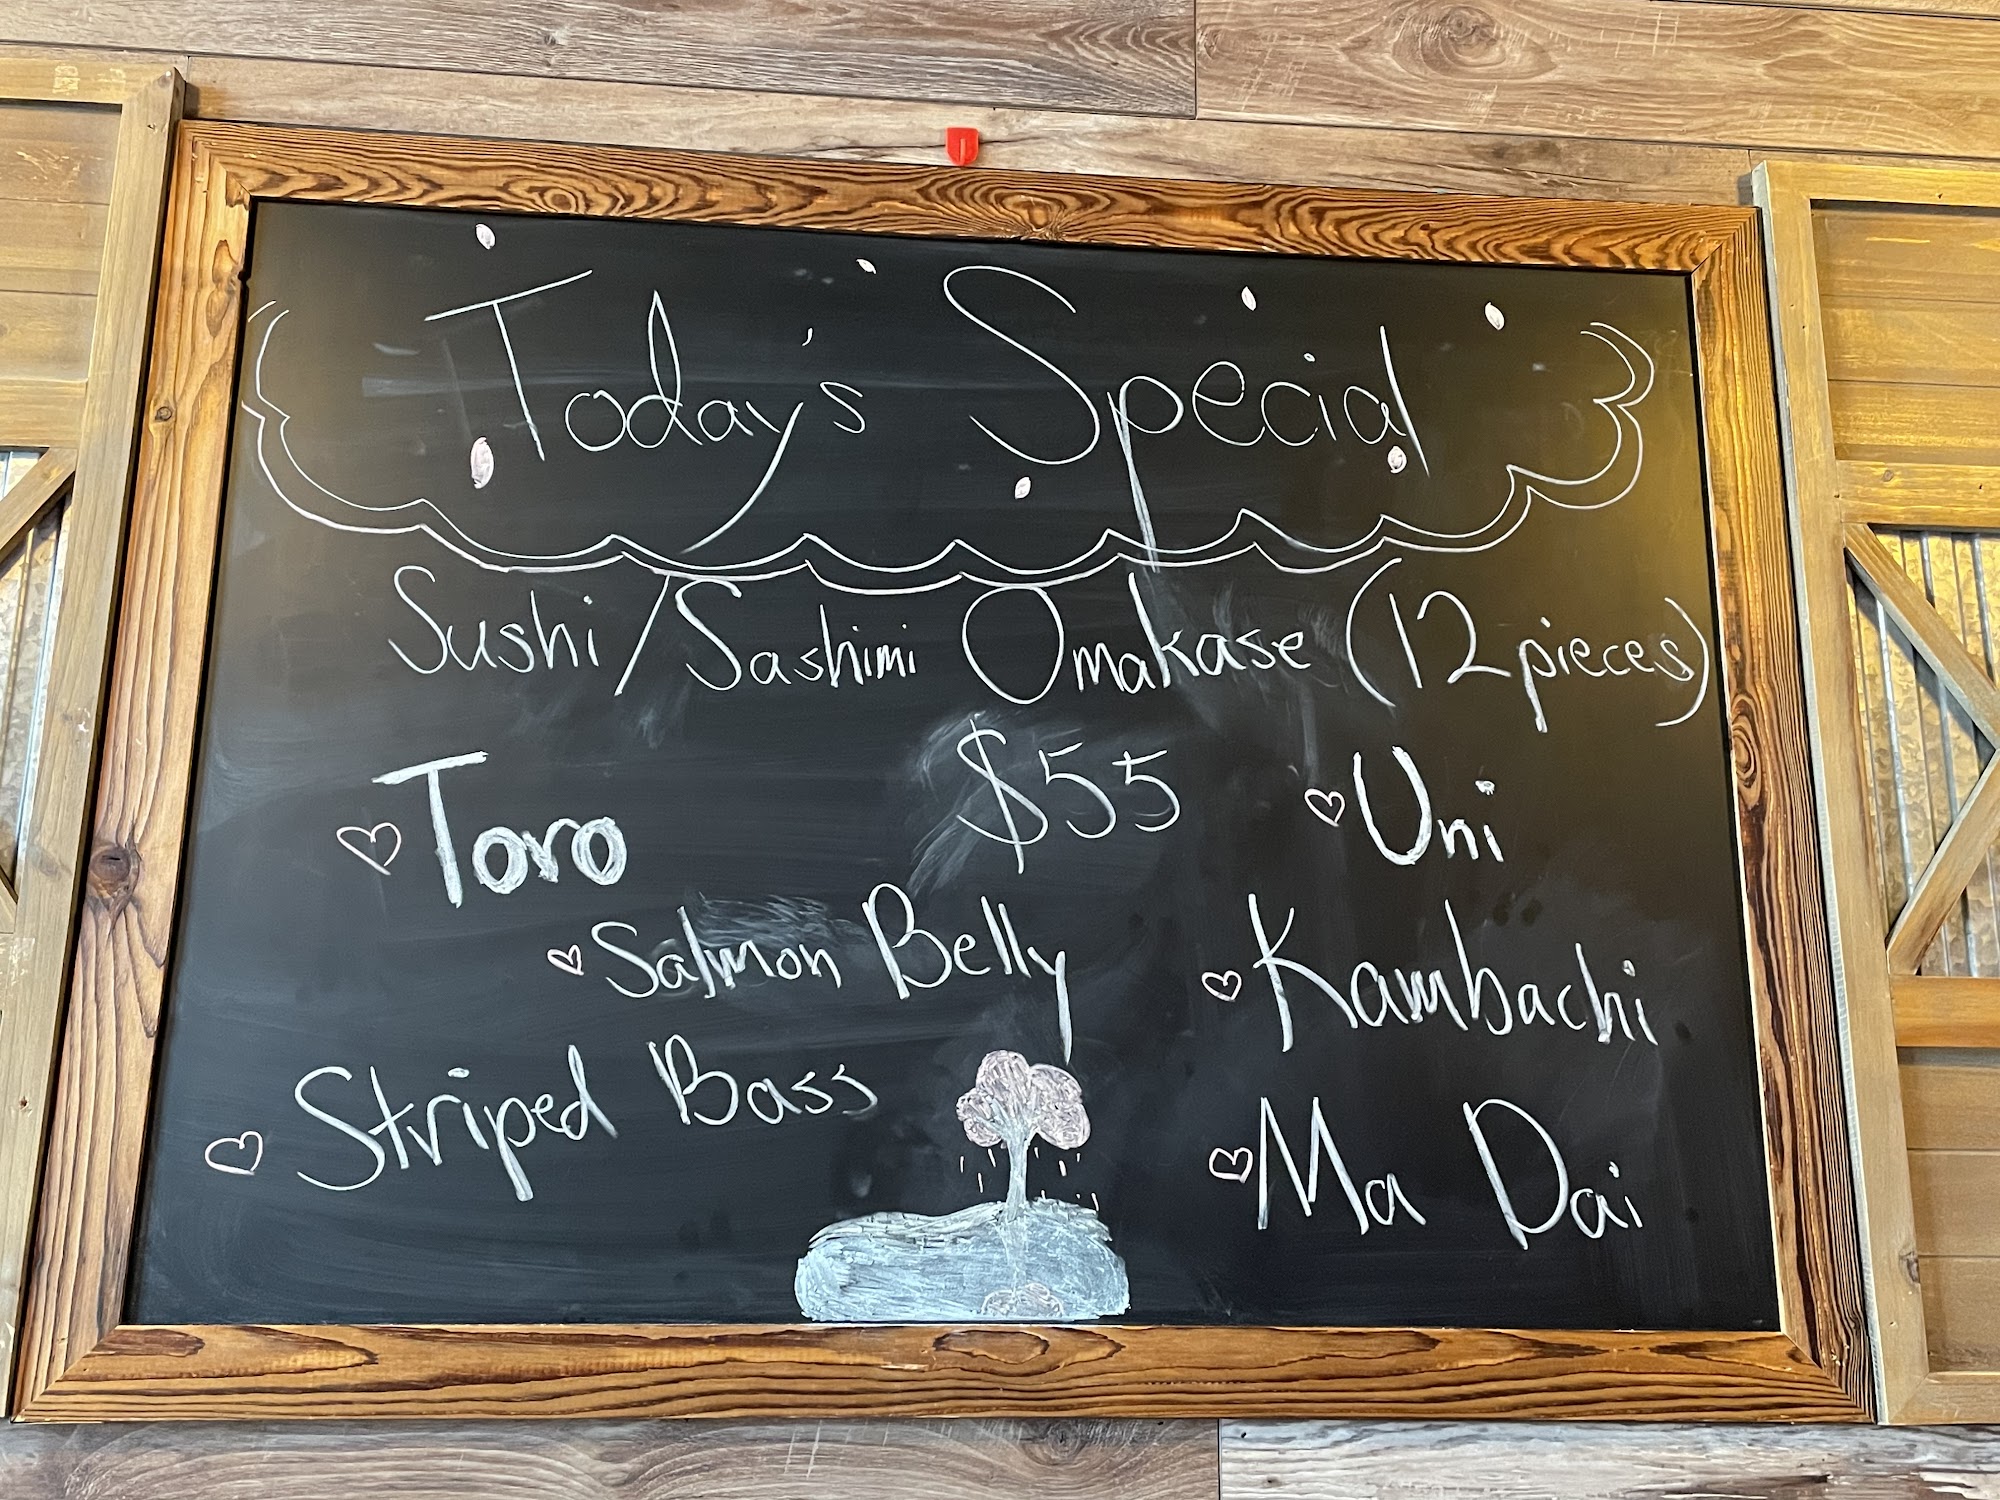 Today's Special
Sushi/Sashimi Omakase (12 pieces)
$55
Toro
Salmon Belly
Striped Bass
Uni
Kambachi
Ma Dai